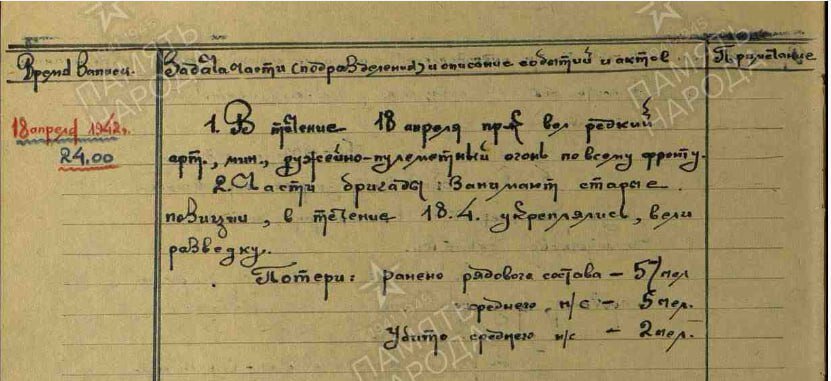 Время записи.
Задача части (подразделения) и описание событий и актов
Примечание
18 апреля 1942г.
24.00
1. В течение 18 апреля пр-к вел редкий
арт., мин., ружейно-пулеметный огонь по всему фронту.
2. Части бригады: Занимают старые
позиции, в течение 18.4. укреплялись, вели
разведку.
Потери: ранено рядового состава – 57 чел
среднего н/с – 5 чел.
Убито среднего н/с – 2 чел.
ПАМЯТЬ
НАРОДА
1941-1945